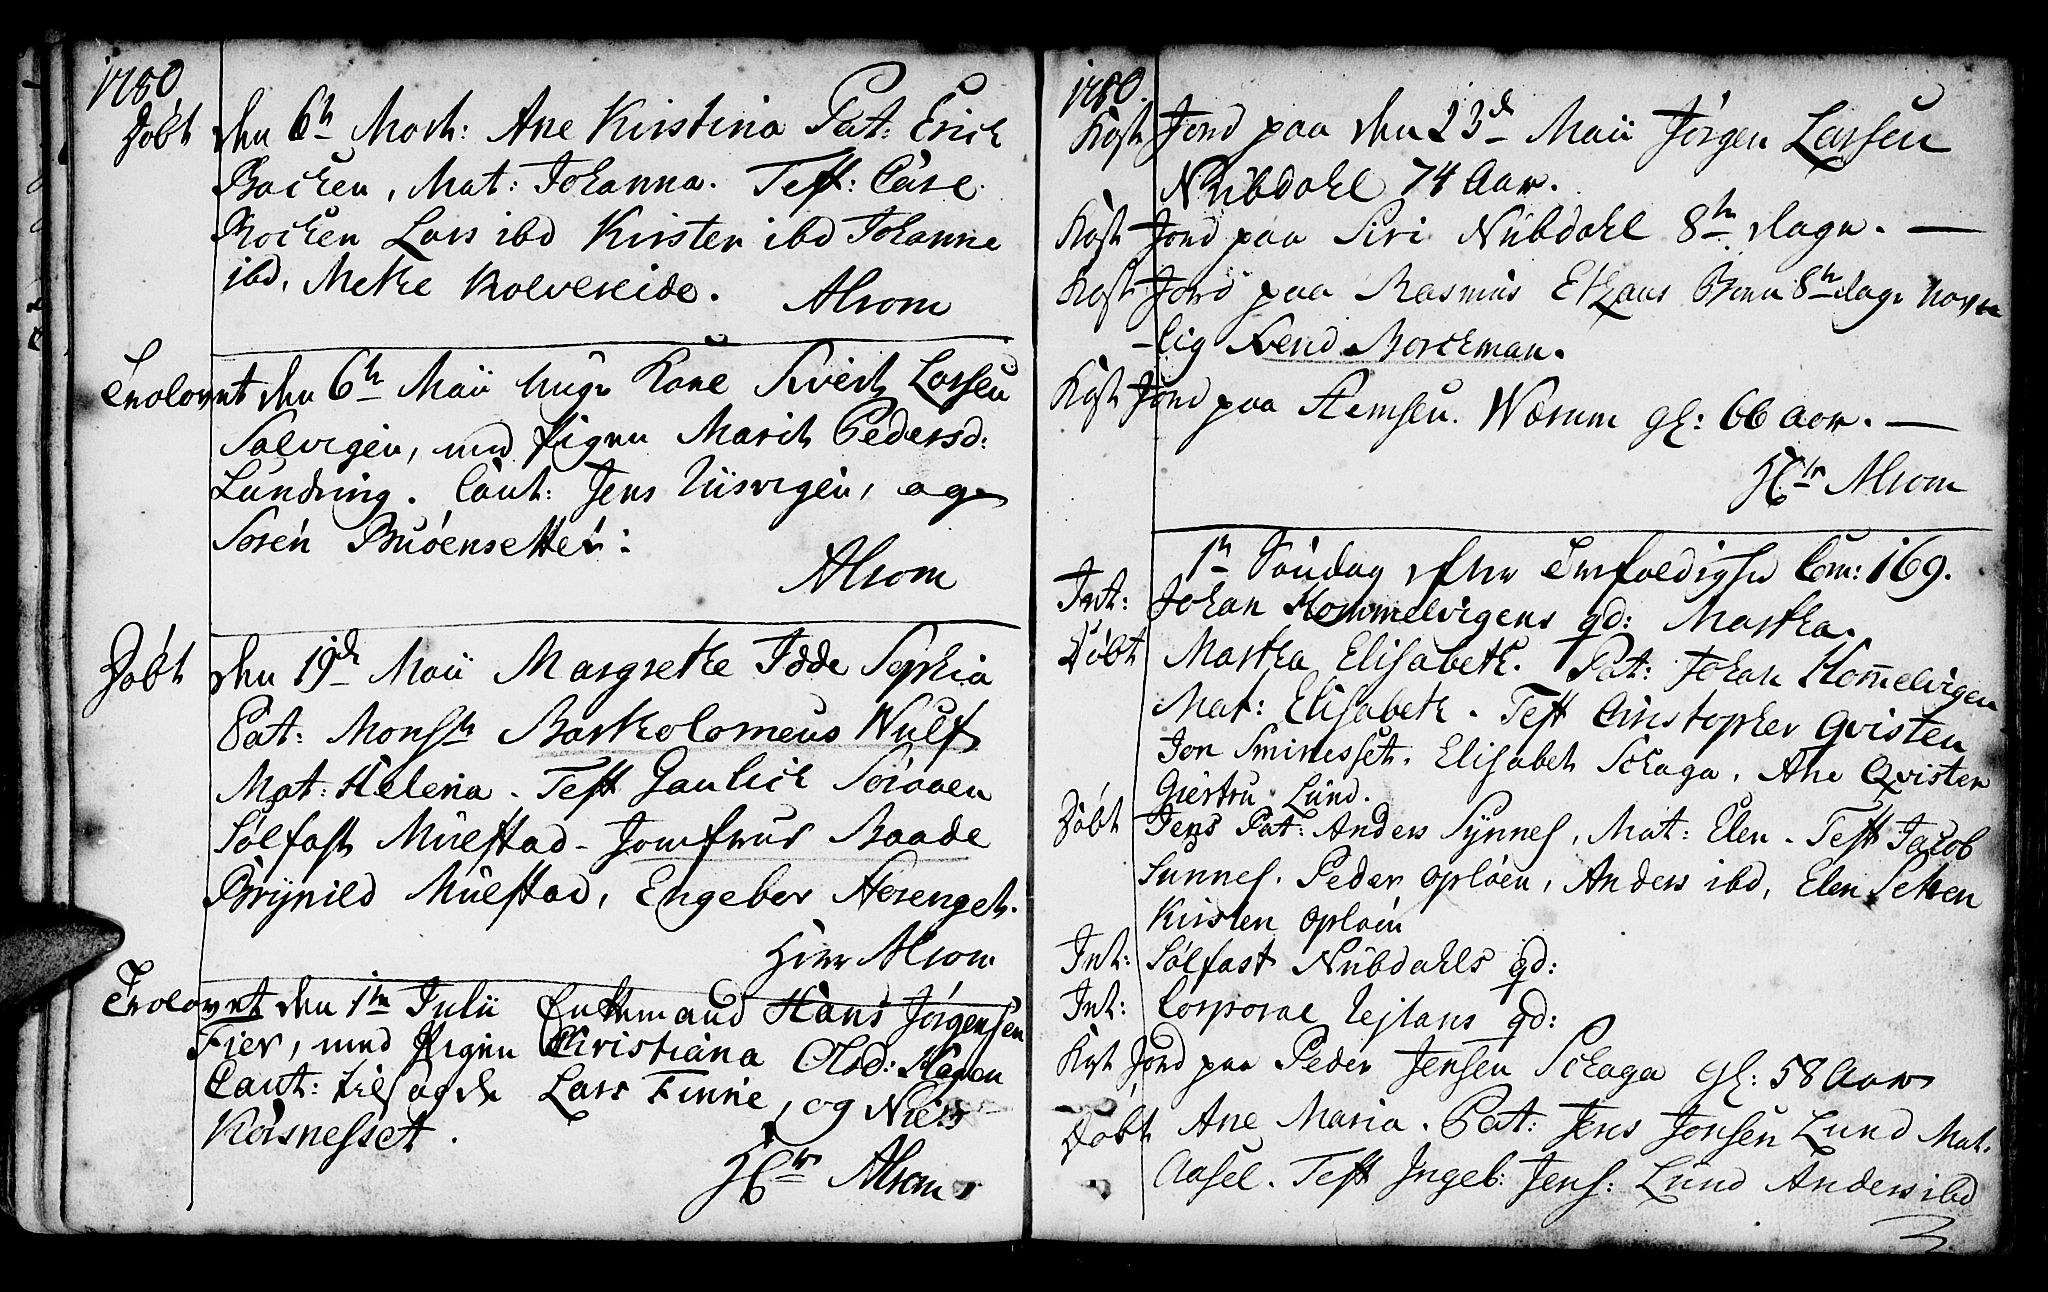 1780
Döbt den 6te Mart: Ane Kirstina Pat: Erich
Backen, Mat: Johanna. Test: Carl
Rochen Lars ibd Kirsten ibd Johanne
ibd, Metke Kolvereide.
Alsom
Trolovet den 6te Maii unge Karl Sivert Larsen
Salvigen, med Pigen Marit Pedersd:
Lundring. Caut: Jens Liisvigen, og
Sören Buöensetter:
Alsom
Döbt den 19de Maii Margrethe Idde Sophia
Pat: Monsr Bartholomeus Wulf
Mat: Helena. Test Gautich Söraaen
Sölfast Müelstad- Jomfrue Baade
Brÿnild Müelstad, Engebor Horenget.
Hirr Alsom
Trolovet den 1te Julii Enkemand Hans Jörgensen
Fier, med Pigen Christiana Olsd: Hagen
Caut: tilsagde Lars Finne, og Niels
Körsnesset.
Hr Alsom
1780.
Kast Jord paa den 23de Maii Jörgen Larsen
Nübdahl 74 Aar.
Kast Jord paa Siri Nübdahl 8te dage.
Kast Jord paa Rasmus Barn 8te dage navn
-lig Svend Borchman.
Kast Jord paa Werum gl: 66 aar.
Hr Alsom
1te Söndag efter Trefoldighed Com: 169.
Int: Johan Hommelvigens qd: Martha.
Döbt Martha Elisabeth. Pat: Johan Hom̄elvigen
Mat: Elisabeth. Test Christopher Qvisten
Jon Sminesset. Elisabet Schaga, Ane Qvisten
Giertru Lund.
Döbt Jens Pat: Anders Sÿnnes, Mat: Elen. Test Jacob
Sunnes. Peder Oplöen, Anders ibd, Elen Setten
Kirsten Oplöen
Int: Sölfast Nübdahls qd:
Int: Corporal Lejlans qd:
Kast Jord paa Peder Jensen Schaga gl: 58 Aar
Döbt Ane Maria. Pat: Jens Jonsen Lund Mat.
Aasel. Test Ingeb: Jens: Lund Anders ibd